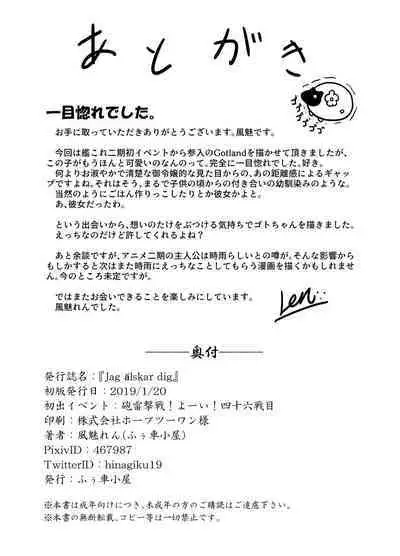 あとがき
一目惚れでした。
お手に取っていただきありがとうございます。風魅です。
今回は艦これ二期初イベントから参入のGotlandを描かせて頂きましたが、
この子がもうほんと可愛いのなんのって。完全に一目惚れでした。好き。
何よりお淑やかで清楚な御令嬢的な見た目からの、あの距離感によるギャッ
プですよね。それはそう、まるで子供の頃からの付き合いの幼馴染みのような。
当然のようにごはん作りっこしたりとか彼女かよと。
あ、彼女だったわ。
という出会いから、想いのたけをぶつける気持ちでゴトちゃんを描きました。
えっちなのだけど許してくれるよね？
あと余談ですが、アニメ二期の主人公は時雨らしいとの噂が。そんな影響から
もしかすると次はまた時雨にえっちなことしてもらう漫画を描くかもしれませ
ん。今のところ未定ですが。
ではまたお会いできることを楽しみにしています。
風魅れんでした。
Len
奥付
発行誌名：『Jag älskar dig』
初版発行日：2019/1/20
初出イベント：砲雷撃戦！よーい！四十六戦目
印刷：株式会社ホープツーワン様
著者：風魅れん(ふぅ車小屋)
PixivID：467987
TwitterID：hinagiku19
発行：ふぅ車小屋
※本書は成年向けにつき、未成年の方のご購読はご遠慮下さい。
※本書の無断転載、コピー等は一切禁止です。